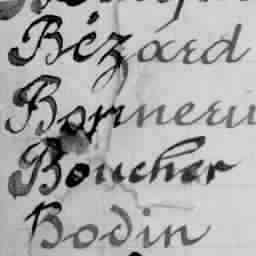 Bézard
Bonneru
Boucher
Bodin